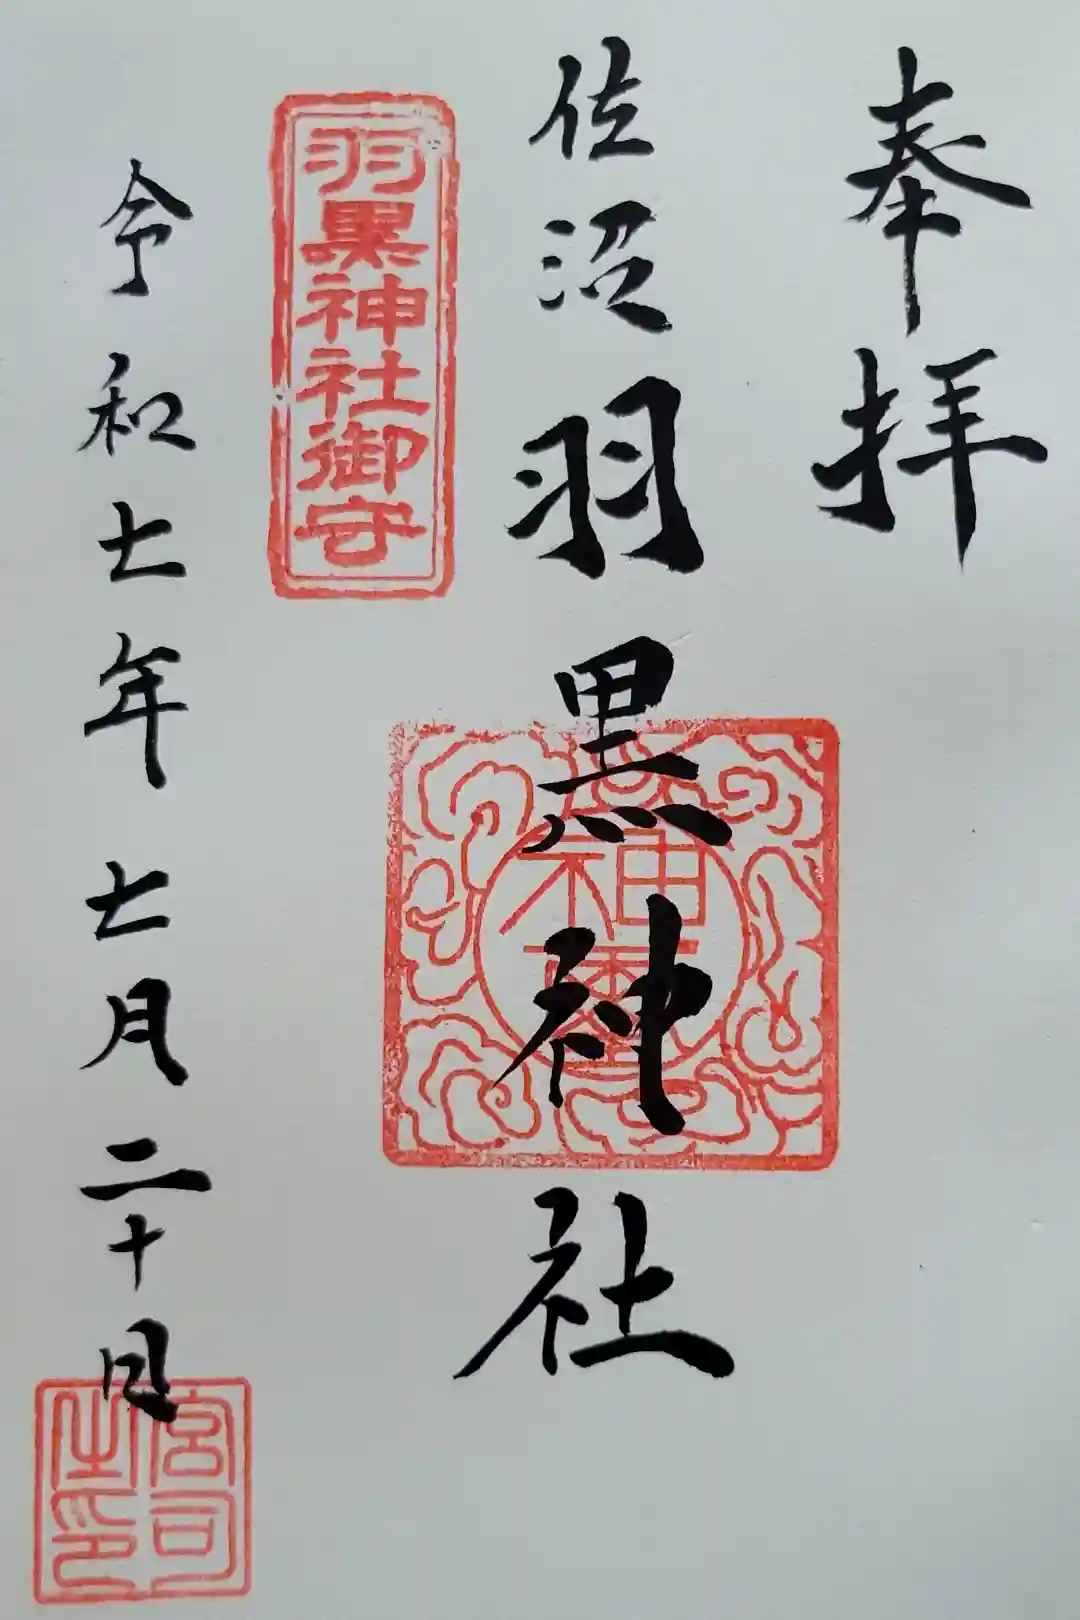 奉拝
佐沼羽黒神社
羽黒神社御守
神璽
令和七年七月二十日
宮司之印